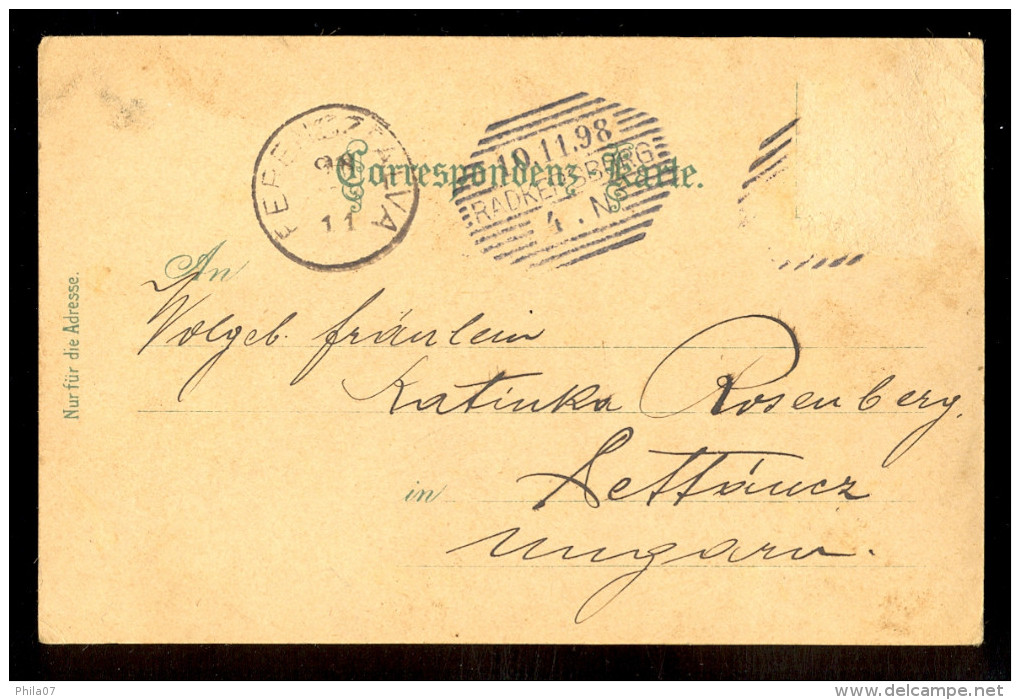 FERENCZFALVA
98
11
10.11.98
RADKERSBURG
4.N
Correspondenz-Karte.
Nur für die Adresse.
An
Wolgeb. fräulein
Katinka Rosenberg.
in
Ungarn.
Phila07
www.delcampe.net